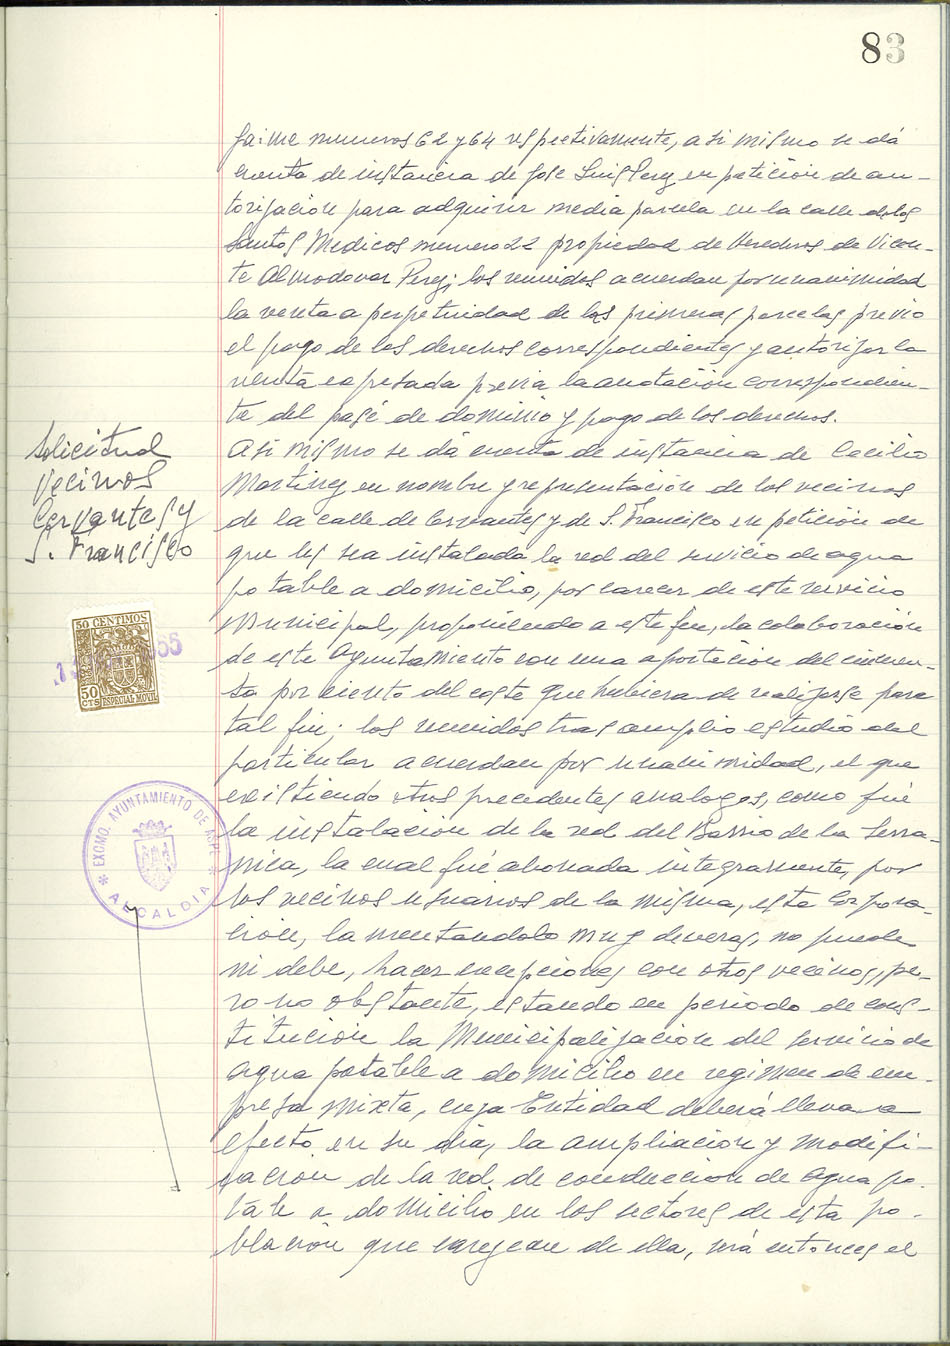 83
Jaime numeros 62 y 64 respectivamente, asi mismo se dá
cuenta de instancia de Jose Luis Perez en petición de au-
torización para adquirir media parcela en la calle de los
Santos Medicos numero 22 propiedad de Herederos de Vicen-
te Almodovar Perez; los reunidos acuerdan por unanimidad
la venta a perpetuidad de las primeras parcelas previo
el pago de los derechos correspondientes y autorizar la
venta expresada previa la anotación correspondien-
te del pase de dominio y pago de los derechos.
Solicitud
Vecinos
Cervantes y
S. Francisco
Asi mismo se dá cuenta de instancia de Cecilio
Martinez en nombre y representación de los vecinos
de la calle de Cervantes y de S. Francisco en petición de
que les sea instalada la red del servicio de agua
potable a domicilio, por carecer de este servicio
Municipal, proponiendo a este fin, la colaboración
de este Ayuntamiento con una aportación del cincuen-
ta por ciento del coste que hubiera de realizarse para
tal fin; los reunidos tras amplio estudio del
particular acuerdan por unanimidad, el que
existiendo otros precedentes analogos, como fué
la instalación de la red del Barrio de la Serra-
nica, la cual fué abonada integramente, por
los vecinos usuarios de la misma, esta Corpora-
ción, lamentandolo muy deveras, no puede
ni debe, hacer excepciones con otros vecinos, pe-
ro no obstante, estando en periodo de cons-
titución la Municipalizacion del servicio de
agua potable a domicilio en regimen de em-
presa mixta, cuya Entidad deberá llevar a
efecto en su dia, la ampliación y modifi-
cación de la red de conduccion de agua po-
table a domicilio en los sectores de esta po-
blación que carezcan de ella, será entonces el
50 CENTIMOS
50
CTS
ESPECIAL MOVIL
EXCMO. AYUNTAMIENTO DE ASPE
* ALCALDIA *